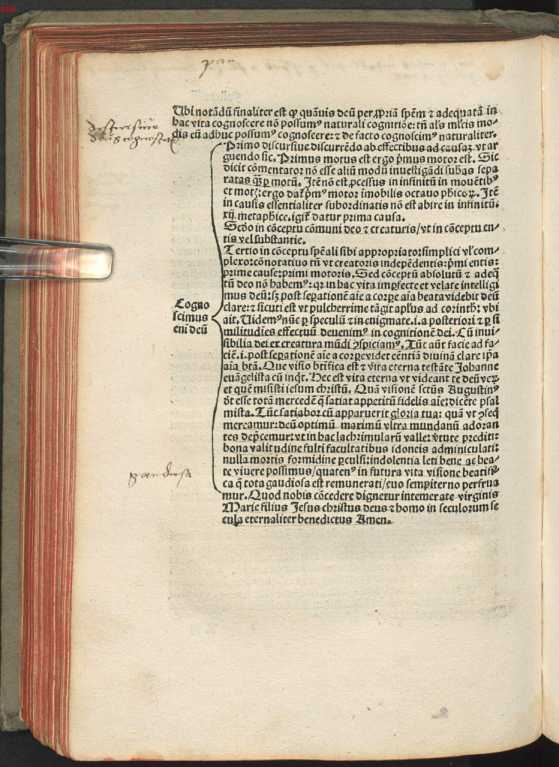 Ubi notādū finaliter est ꝙ quāuis deū per ꝓpriā spēm ⁊ adequatā in
hac vita cognoscere nō possumꝰ naturali cognitiōe: tn̄ alis mltis mo-
dis eū adhuc possumꝰ cognoscere: ⁊ de facto cognoscimꝰ naturaliter.
Primo discursiue discurrēdo ab effectibus ad causaꝫ. vt ar
guendo sic. Primus motus est ergo pͥmus motor est. Sic
dicit cōmentator nō esse aliū modū inuestigādi subas sepa
ratas qꝫ ꝑ motū. Itē nō est ꝓcessus in infinitū in mouētibꝰ
et motꝭ: ergo daꝉ pͥmꝰ motor īmobilis octauo phicoꝝ. Itē
in causis essentialiter subordinatis nō est abire in infinitū.
xij. metaphice. igiꝉ datur prima causa.
Scḋo in cōceptu cōmuni deo ⁊ creaturis/vt in cōceptu en-
tis vel substantie.
Tertio in cōceptu spēali sibi appropriato: simplici vl̓ com-
plexo: cōnotatiuo tn̄ vt creatoris indepēdentis: pͥmi entis:
prime cause: primi motoris. Sed cōceptū absolutū ⁊ adeq̄
tū deo nō habemꝰ: qꝛ in hac vita imꝑfecte et velate intelligi
mus deū: sꝫ post seꝑationē aīe a corꝑe aīa beata videbit deū
clare: ⁊ sicuti est vt pulcherrime tāgit apl̓us ad corinth: vbi
ait. Uidemꝰ nūc ꝑ speculū ⁊ in enigmate. i. a posteriori ⁊ ꝑ si
militudīes effectuū deuenimꝰ in cognitionē dei. Cū inui
sibilia dei ex creatura mūdi ꝯspiciam̄ꝰ. Tūc aūt facie ad fa-
ciē. i. post seꝑationē aīe a corꝑe videt cēntiā diuinā clare ip̄a
aīa btā. Que visio btīfica est ⁊ vīta eterna testāte Johanne
euāgelista cū inq̇t. Hec est vita eterna vt videant te deū veꝝ
et quē misisti iesum christū. Quā visionē sctūs Augustinꝰ
ōt esse totā mercedē q̄ satiat appetitū fidelis aīe: dicēte psal
mista. Tūc satiabor cū apparuerit gloria tua: quā vt ꝯseq̇
mereamur: deū optimū maximū vltra mundanū adoran
tes dep̄cemur: vt in hac lachrimarū valle: v̓tute prediti:
bona valitudine fulti facultatibus idoneis adminiculati:
nulla mortis formidine ꝑculsi: indolentia leti bene ac bea-
te viuere possimus/quatenꝰ in futura vita visione beatifi-
ca q̄ tota gaudiosa est remunerati/euo sempiterno perfrua
mur. Quod nobis cōcedere dignetur intemerate virginis
Marie filius Jesus christus deus ⁊ homo in seculorum se
cula eternaliter benedictus Amen.
Cogno
scimus
eni deū